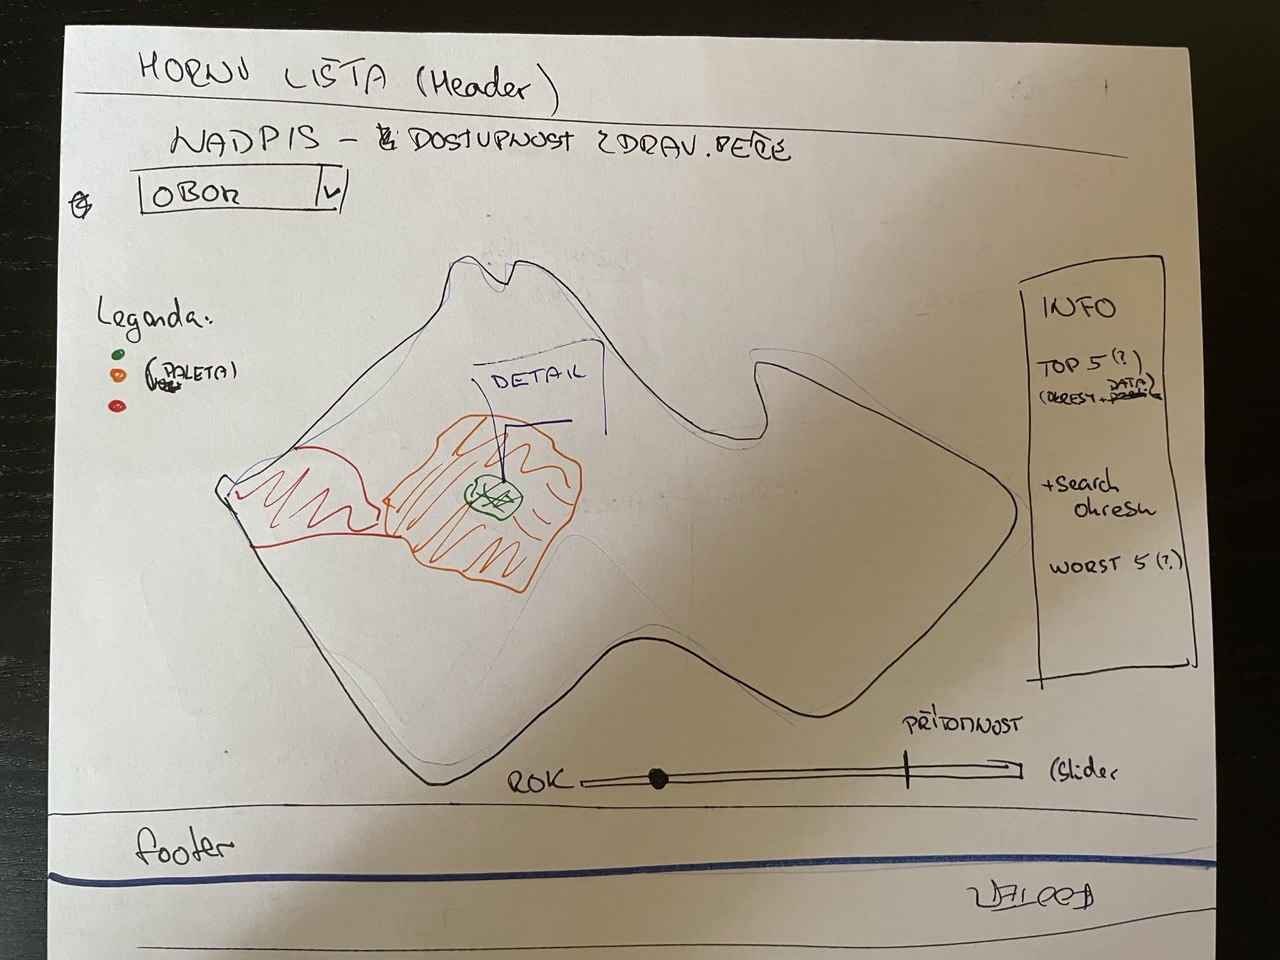 HORNÍ LIŠTA (Header)
NADPIS - DOSTUPNOST ZDRAV. PÉČE
OBOR
Legenda:
(PALETA)
DETAIL
INFO
TOP 5 (?)
(OKRESY + DATA)
+search
okresu
WORST 5 (?)
PŘÍTOMNOST
ROK
(Slider
footer